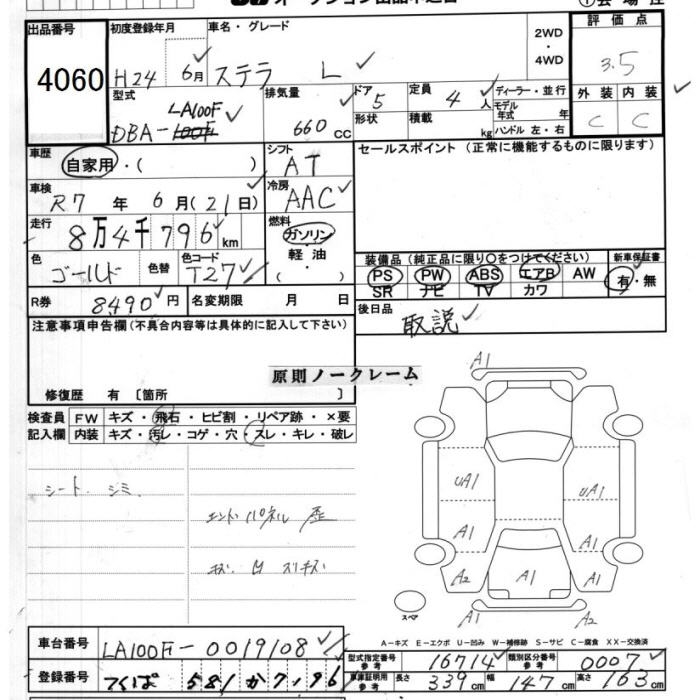 オークション出品申込書
①会場控
出品番号
4060
初度登録年月
H24 6月
車名・グレード
ステラ L
2WD
・
4WD
評価点
3.5
型式
LA100F
DBA-100F
排気量
660cc
ドア 5
形状
定員 4人
積載 kg
ディーラー・並行
モデル
年式 年
ハンドル 左・右
外装 内装
C C
車歴
自家用・( )
シフト
AT
セールスポイント (正常に機能するものに限ります)
車検
R7年 6月(21日)
冷房
AAC
走行
8万4千796km
燃料
ガソリン
・
軽油
・
( )
色
ゴールド
色替
色コード
T27
装備品(純正品に限り○をつけてください)
新車保証書
PS PW ABS エアB AW
SR ナビ TV カワ
有・無
R券 8490円
名変期限 月 日
後日品
取説
注意事項申告欄(不具合内容等は具体的に記入して下さい)
原則ノークレーム
修復歴 有 〔箇所 〕
検査員
記入欄
FW キズ・飛石・ヒビ割・リペア跡・×要
内装 キズ・汚レ・コゲ・穴・スレ・キレ・破レ
シート. シミ.
エンド.パネル 歪
キズ. 凹 スリキズ
A1
UA1 UA1
A1 A1
A2 A1 A1
スペア
A1 A2
A-キズ E-エクボ U-凹み W-補修跡 S-サビ C-腐食 XX-交換済
車台番号 LA100F-0019108
型式指定番号
参考
16714
類別区分番号
参考
0007
登録番号 つくば 581 か 7・96
車庫証明用
参考
長さ 339cm 幅 147cm 高さ 163cm